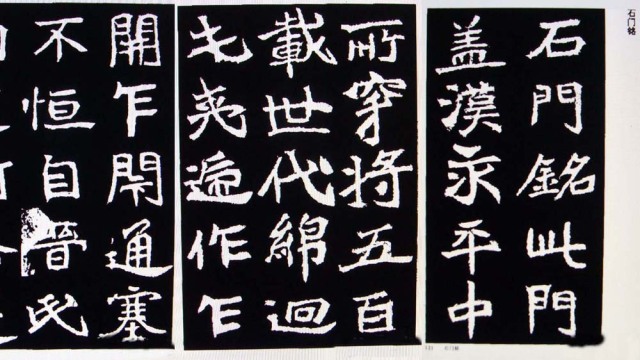 石门铭
石門銘此門
盖漢永平中
所穿將五百
載世代綿迴
屯夷遞作乍
開乍閇通塞
不恒自晉氏